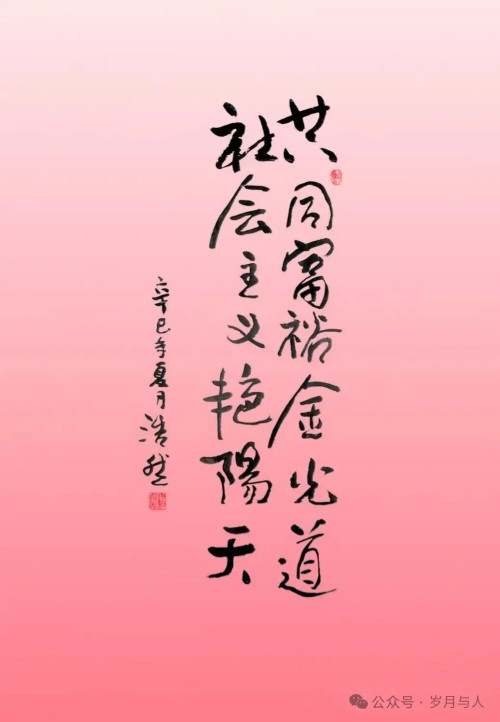 共同富裕金光道
社会主义艳陽天
辛巳年夏月浩然
公众号·岁月与人